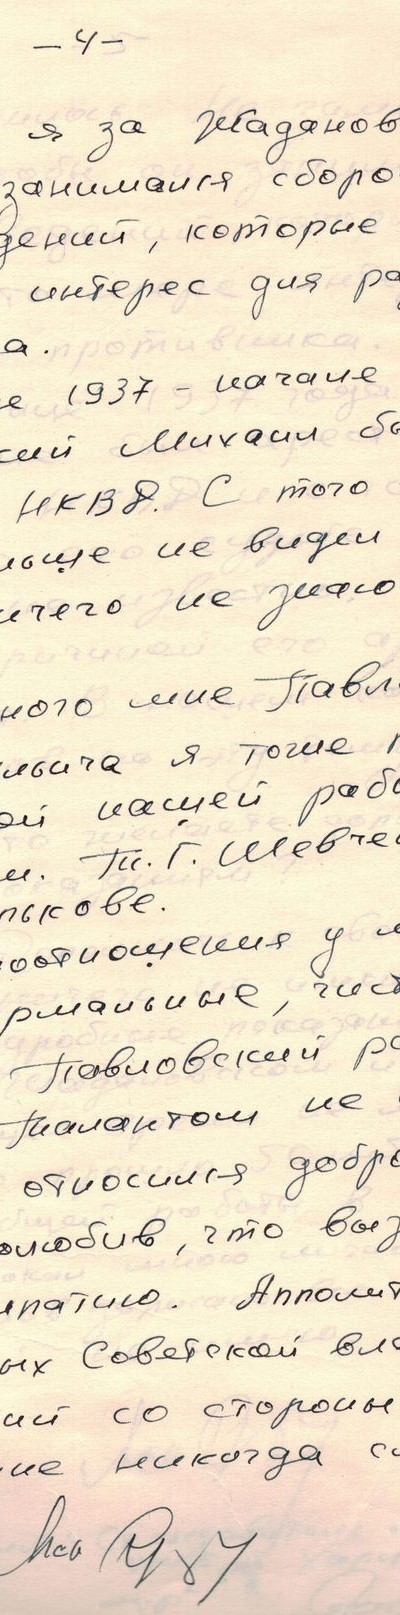 –4–
я за Жаданов
занимался сборо
дений, которые
интерес для ра
а.
е 1937 – начале
кий Михаил бы
НКВД. С того
льше не видел
ичего не знаю
ного мне Павл
льича я тоже
ой нашей рабо
м. Т. Г. Шевчен
рькове.
моотношения у м
рмальные, чист
Павловский ра
талантом не
относился добро
олюбив, что выз
мпатию. Апполит
ых Советской вла
ий со стороны
ие никогда с